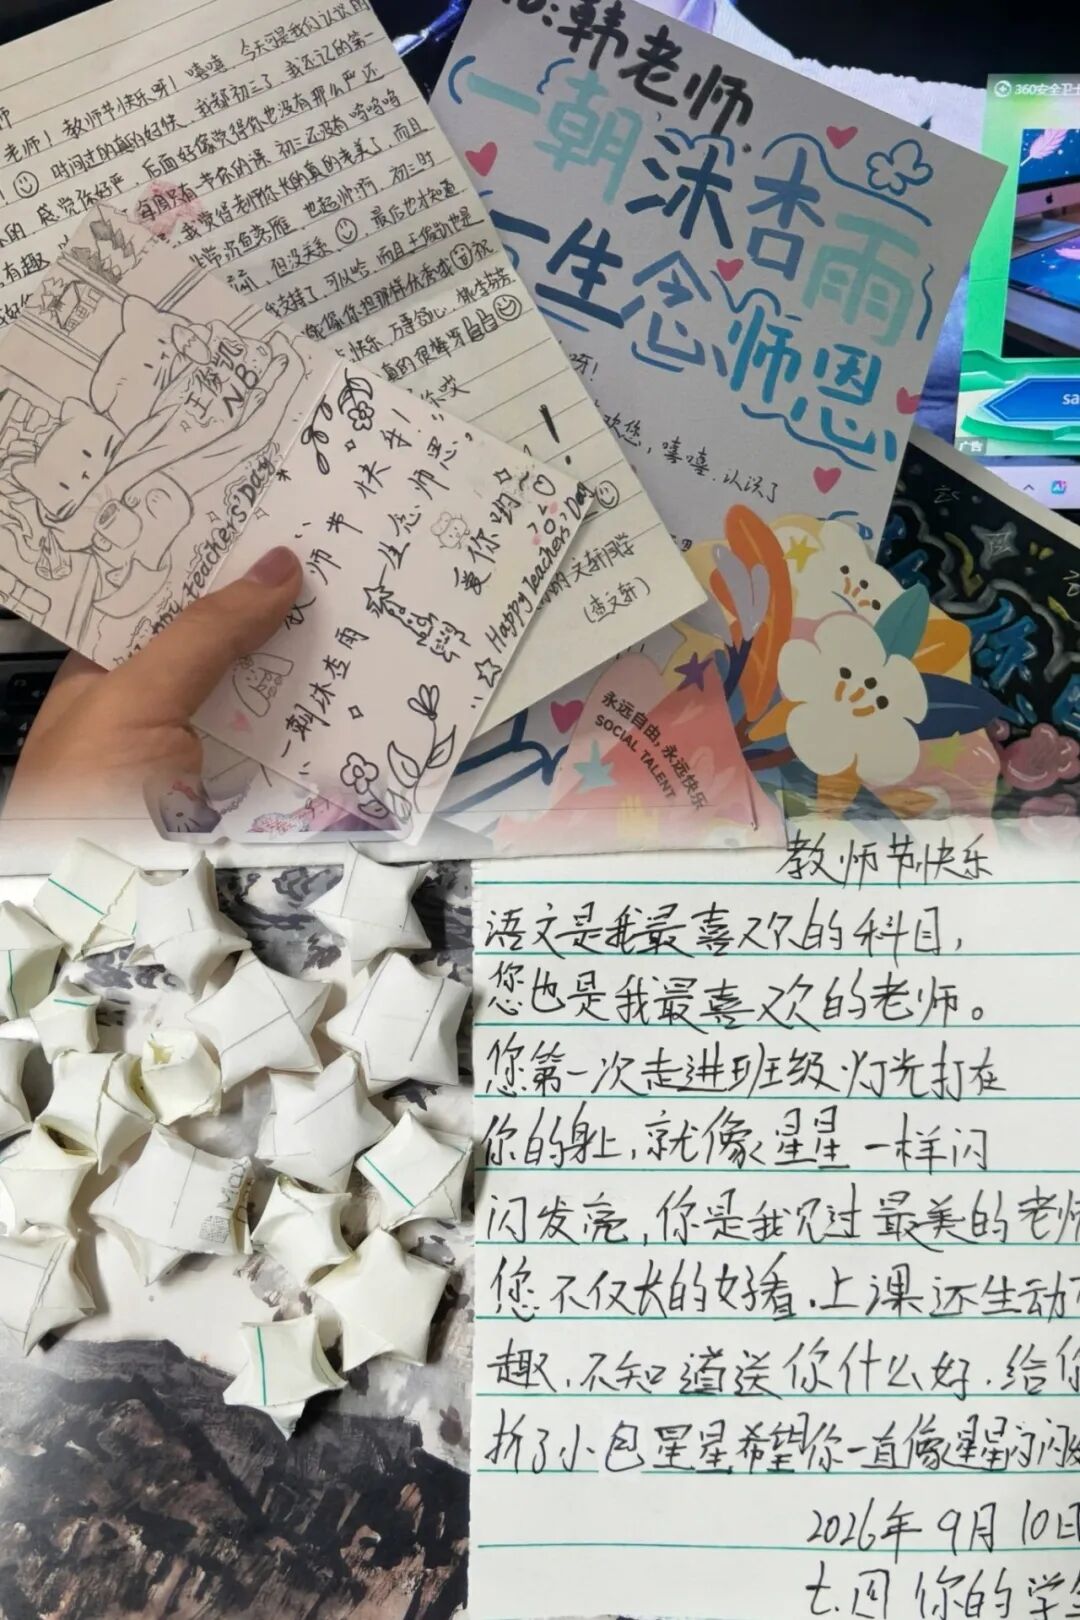 老师！教师节快乐呀！嘻嘻，今天可是我们认识的
时间过的真的好快，我都初三了，我还记的第一
感觉你好严，后面好像觉得你也没有那么严还
有趣
每周只有一节你的课
初三还没有呜呜呜
我觉得老师你长的真的老美了，而且
沉鱼落雁，也超帅滴，初三时
但没关系
最后也才知道
我支持了，可以哈，而且王俊凯也是
快乐，万事舒心，桃李芬芳
真的很棒呀
文轩同学
王俊凯
NB
Happy teachers' Day
师节快乐呀！
一朝沐杏雨
一生念师恩
爱你哟
Happy Teachers' Day
韩老师
一朝沐杏雨
一生念师恩
呀！
欢您，嘻嘻，认识了
永远自由，永远快乐
SOCIAL TALENT
360安全卫士
广告
教师节快乐
语文是我最喜欢的科目，
您也是我最喜欢的老师。
您第一次走进班级灯光打在
你的身上，就像星星一样闪
闪发亮，你是我见过最美的老师
您不仅长的好看，上课还生动
趣，不知道送你什么好，给你
折了小包星星希望你一直像星星闪闪
2026年9月10日
七.四 你的学生